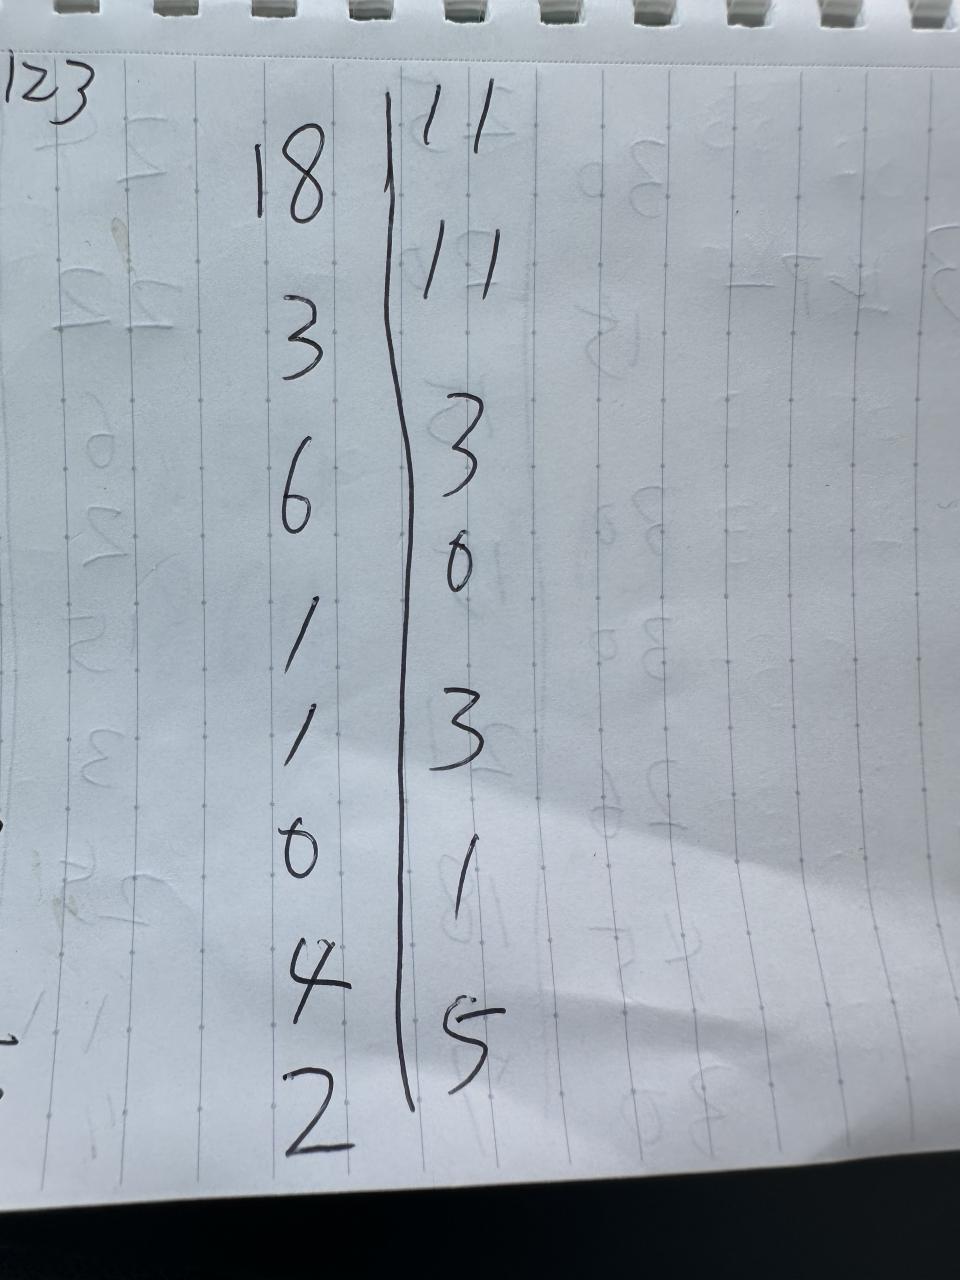 123
18
3
6
1
1
0
4
2
11
11
3
0
3
1
5